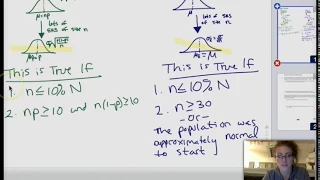 μ=np
lots of
SRS of
size n
μp̂=p
This is True If
1. n≤10% N
2. np≥10 and n(1-p)≥10
lots of
SRS of
size n
μx̄=μ
This is True If
1. n≤10% N
2. n≥30
-or-
The population was
approximately normal
to start